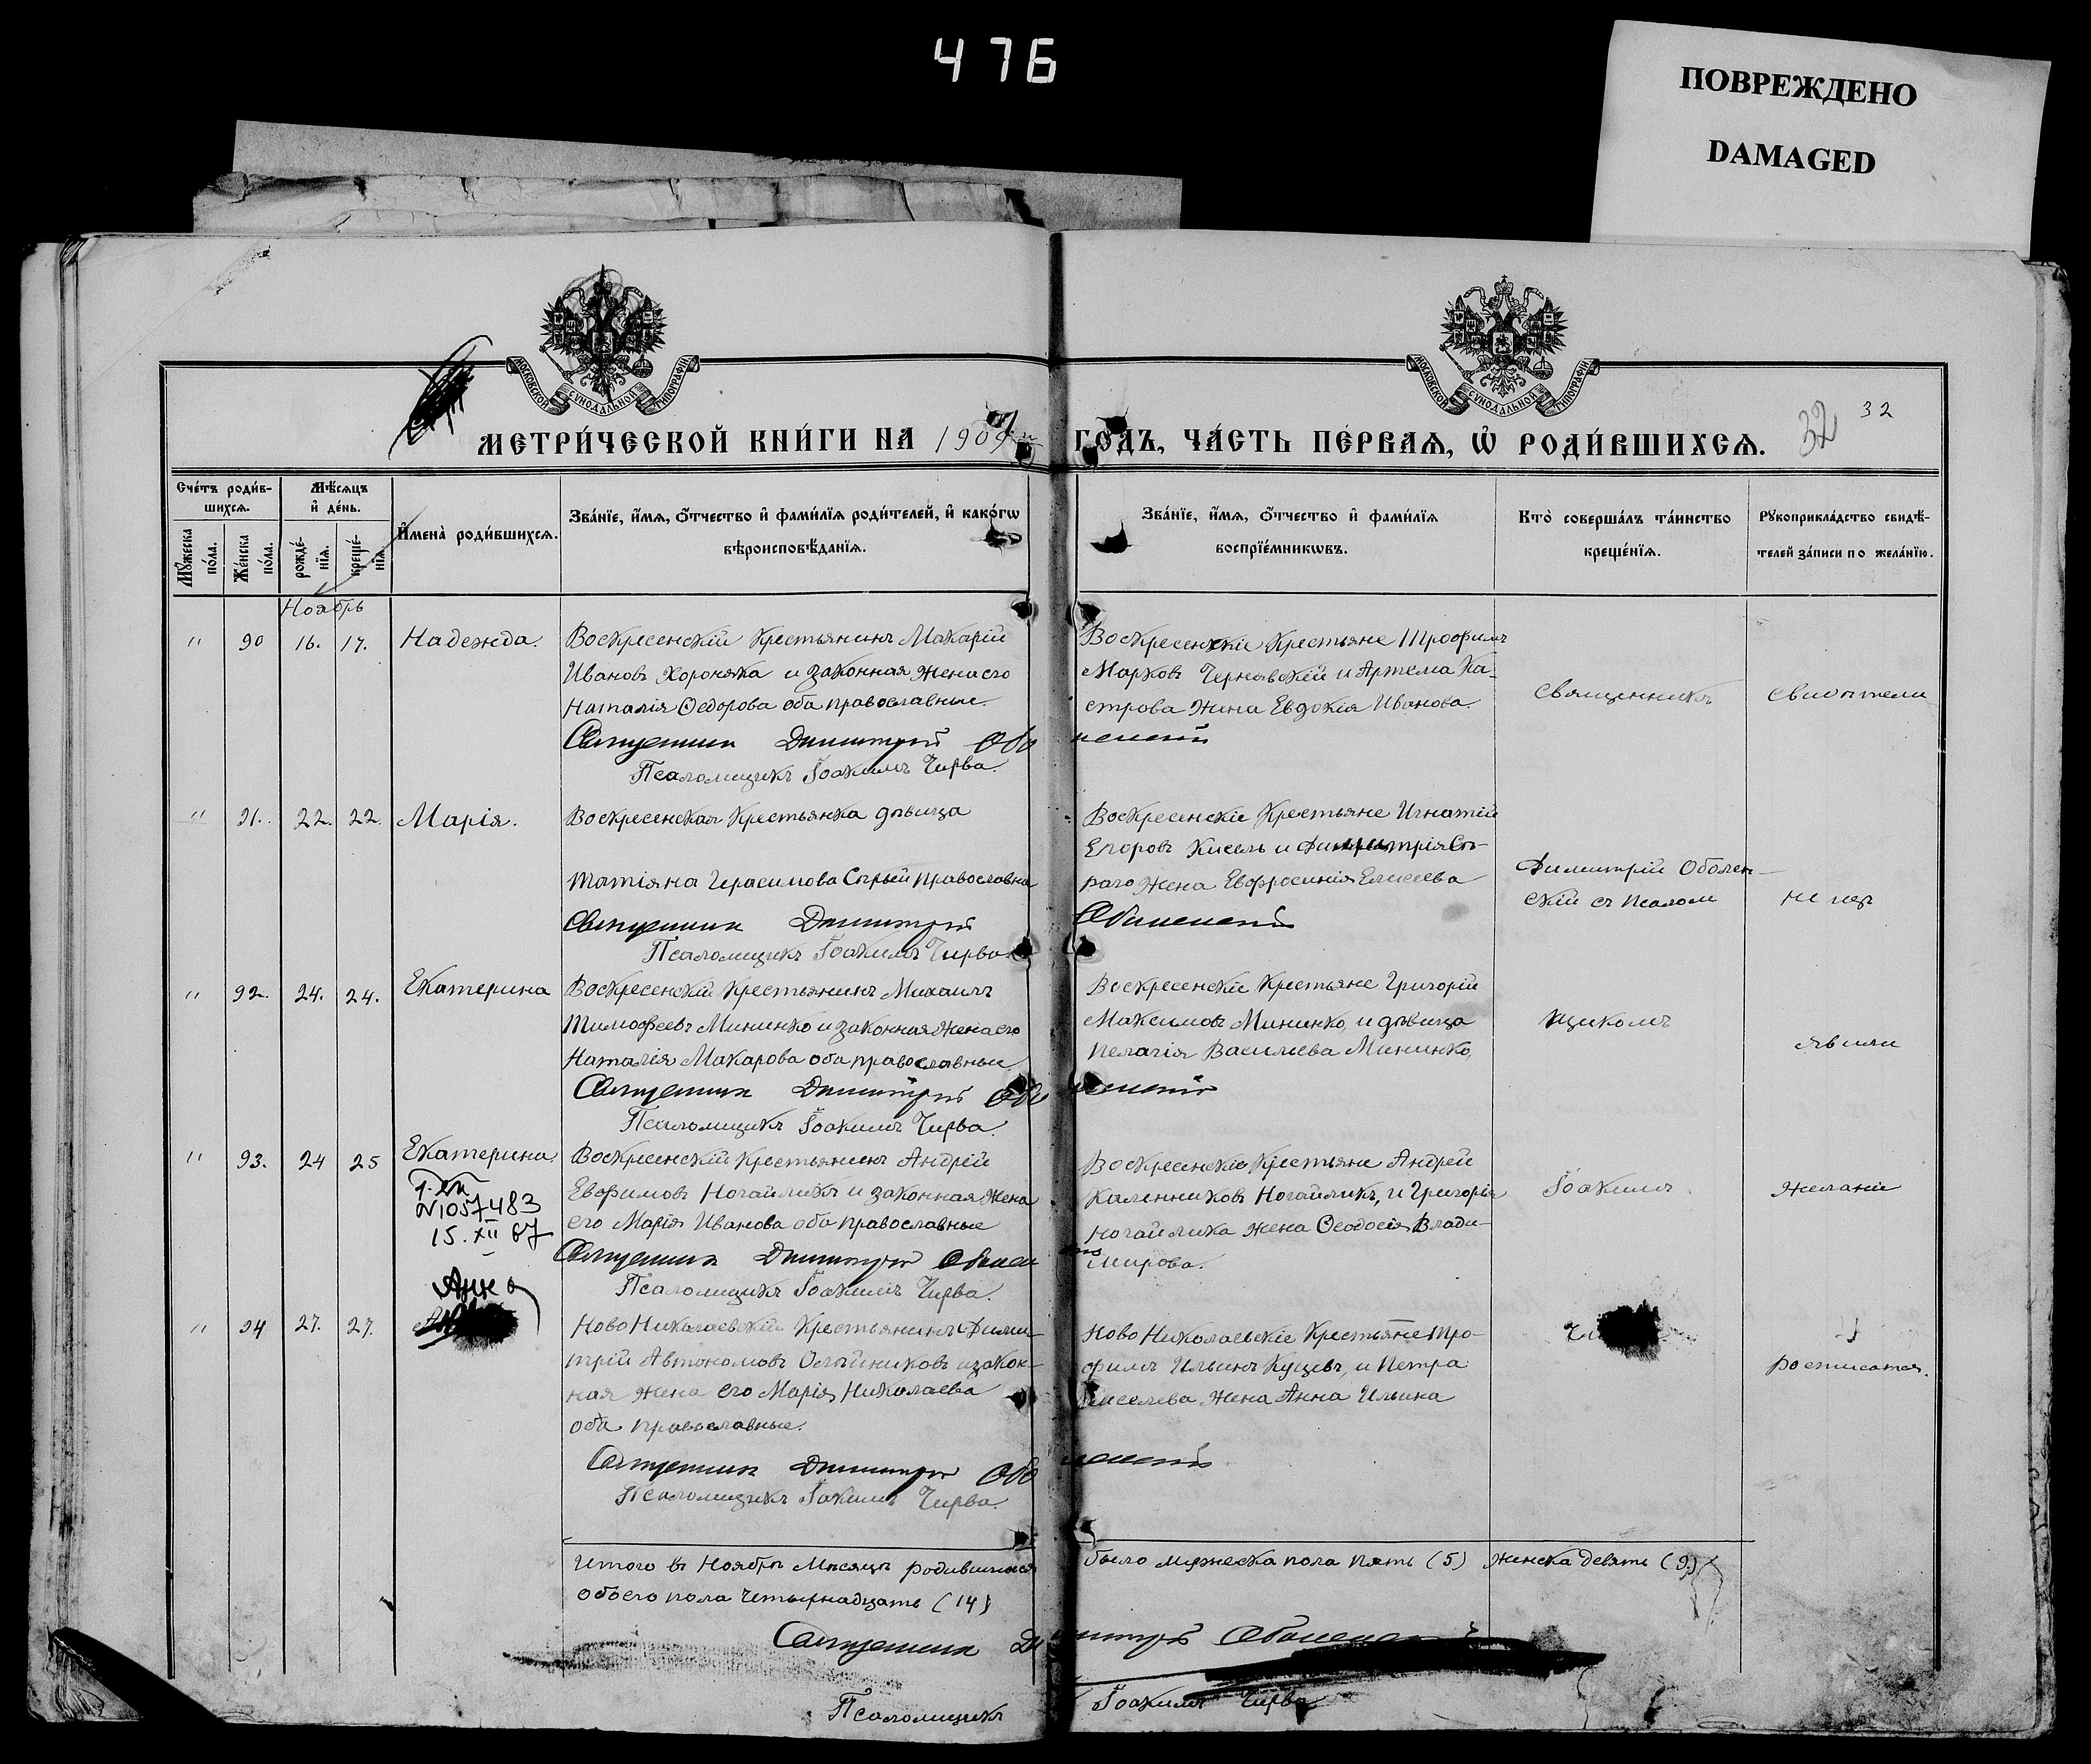 476
ПОВРЕЖДЕНО
DAMAGED
МОСКОВСКОЙ СѴНОДАЛЬНОЙ ТИПОГРАФІИ
МОСКОВСКОЙ СѴНОДАЛЬНОЙ ТИПОГРАФІИ
МЕТРИ́ЧЕСКОЙ КНИ́ГИ НА 1909 ГО́ДЪ, ЧА́СТЬ ПЕ́РВАѦ, Ѡ҆ РОДИ́ВШИХСѦ.
32 32
Сче́тъ роди́в-
шихсѧ.
Мѣ́сѧцъ
и҆ де́нь.
Мꙋ́жеска по́ла.
Же́нска по́ла.
рожде́-
нїѧ.
креще́-
нїѧ.
И҆мена̀ роди́вшихсѧ.
Зва́нїе, и҆́мѧ, ѻ҆́тчество и҆ фами́лїѧ роди́телей, и҆ како́гѡ
вѣроисповѣ́данїѧ.
Зва́нїе, и҆́мѧ, ѻ҆́тчество и҆ фами́лїѧ
воспрїе́мникѡвъ.
Кто̀ соверша́лъ та́инство
креще́нїѧ.
Рꙋкоприкла́дство свидѣ́-
телей за́писи по жела́нїю.
Ноябрь
" 90 16. 17. Надежда.
Воскресенскій Крестьянинъ Макарій
Ивановъ Хороняка и законная жена его
Наталія Ѳедорова оба православные.
Священник Димитрий Оболенский
Псаломщикъ Іоакимъ Чирва.
Воскресенскіе Крестьяне Трофимъ
Марковъ Чернявскій и Артема Ка-
строва жена Евдокія Иванова.
Священникъ
Свидѣтели
" 91. 22. 22. Марія.
Воскресенская Крестьянка дѣвица
Татіяна Герасимова Сѣрый православна
Священник Димитрий Оболенский
Псаломщикъ Іоакимъ Чирва.
Воскресенскіе Крестьяне Игнатій
Егоровъ Кисель и Димитрія Сѣ-
раго жена Евфросинія Елисеева
Димитрій Оболен-
скій съ Псалом
не изъ
" 92. 24. 24. Екатерина
Воскресенскій Крестьянинъ Михаилъ
Тимофеевъ Мининко и законная жена его
Наталія Макарова оба православные
Священник Димитрий Оболенский
Псаломщикъ Іоакимъ Чирва.
Воскресенскіе Крестьяне Григорій
Максимовъ Мининко, и дѣвица
Пелагія Васильева Мининко,
щикомъ
явили
" 93. 24 25 Екатерина.
N1057483
15. XII 67
Воскресенскій Крестьянинъ Андрій
Евфимовъ Ногайликъ и законная жена
его Марія Иванова оба православные
Священник Димитрий Оболен
Псаломщикъ Іоакимъ Чирва.
Воскресенскіе Крестьяне Андрей
Калинниковъ Ногайликъ, и Григорія
Ногайлика жена Ѳеодосія Влади-
мирова.
Іоакимъ
желаніе
Анна
" 94 27. 27.
Ново Николаевскій Крестьянинъ Дими-
трій Автономовъ Олейниковъ и закон-
ная жена его Марія Николаева
оба православные.
Священник Димитрий Оболенский
Псаломщикъ Іакимъ Чирва.
Ново Николаевскіе Крестьяне Тро-
фимъ Ильинъ Куцевъ, и Петра
Киселева жена Анна Ильина
росписатся.
Итого въ Ноябрѣ Мѣсяцѣ родившихся было мужеска пола пять (5) женска девять (9)
обоего пола четырнадцать (14)
Священник Димитрий Оболенский
Псаломщикъ Іоакимъ Чирва